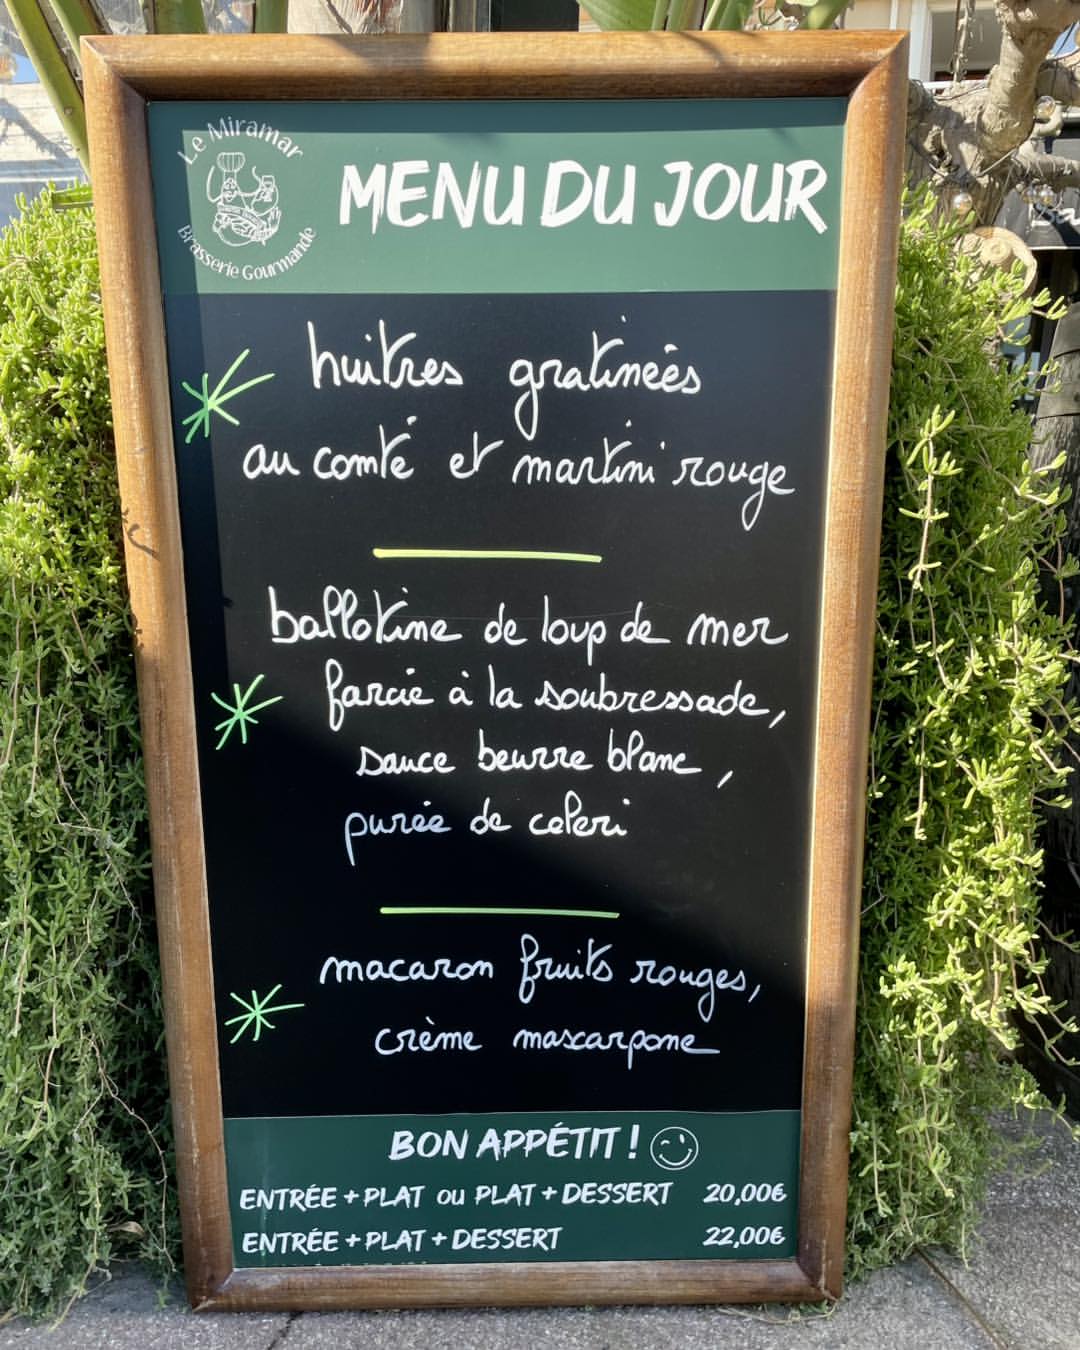 Le Miramar
Brasserie Gourmande
MENU DU JOUR
huîtres gratinées
au comté et martini rouge
ballotine de loup de mer
farcie à la soubressade,
sauce beurre blanc,
purée de celeri
macaron fruits rouges,
crème mascarpone
BON APPÉTIT !
ENTRÉE + PLAT OU PLAT + DESSERT 20,00€
ENTRÉE + PLAT + DESSERT 22,00€